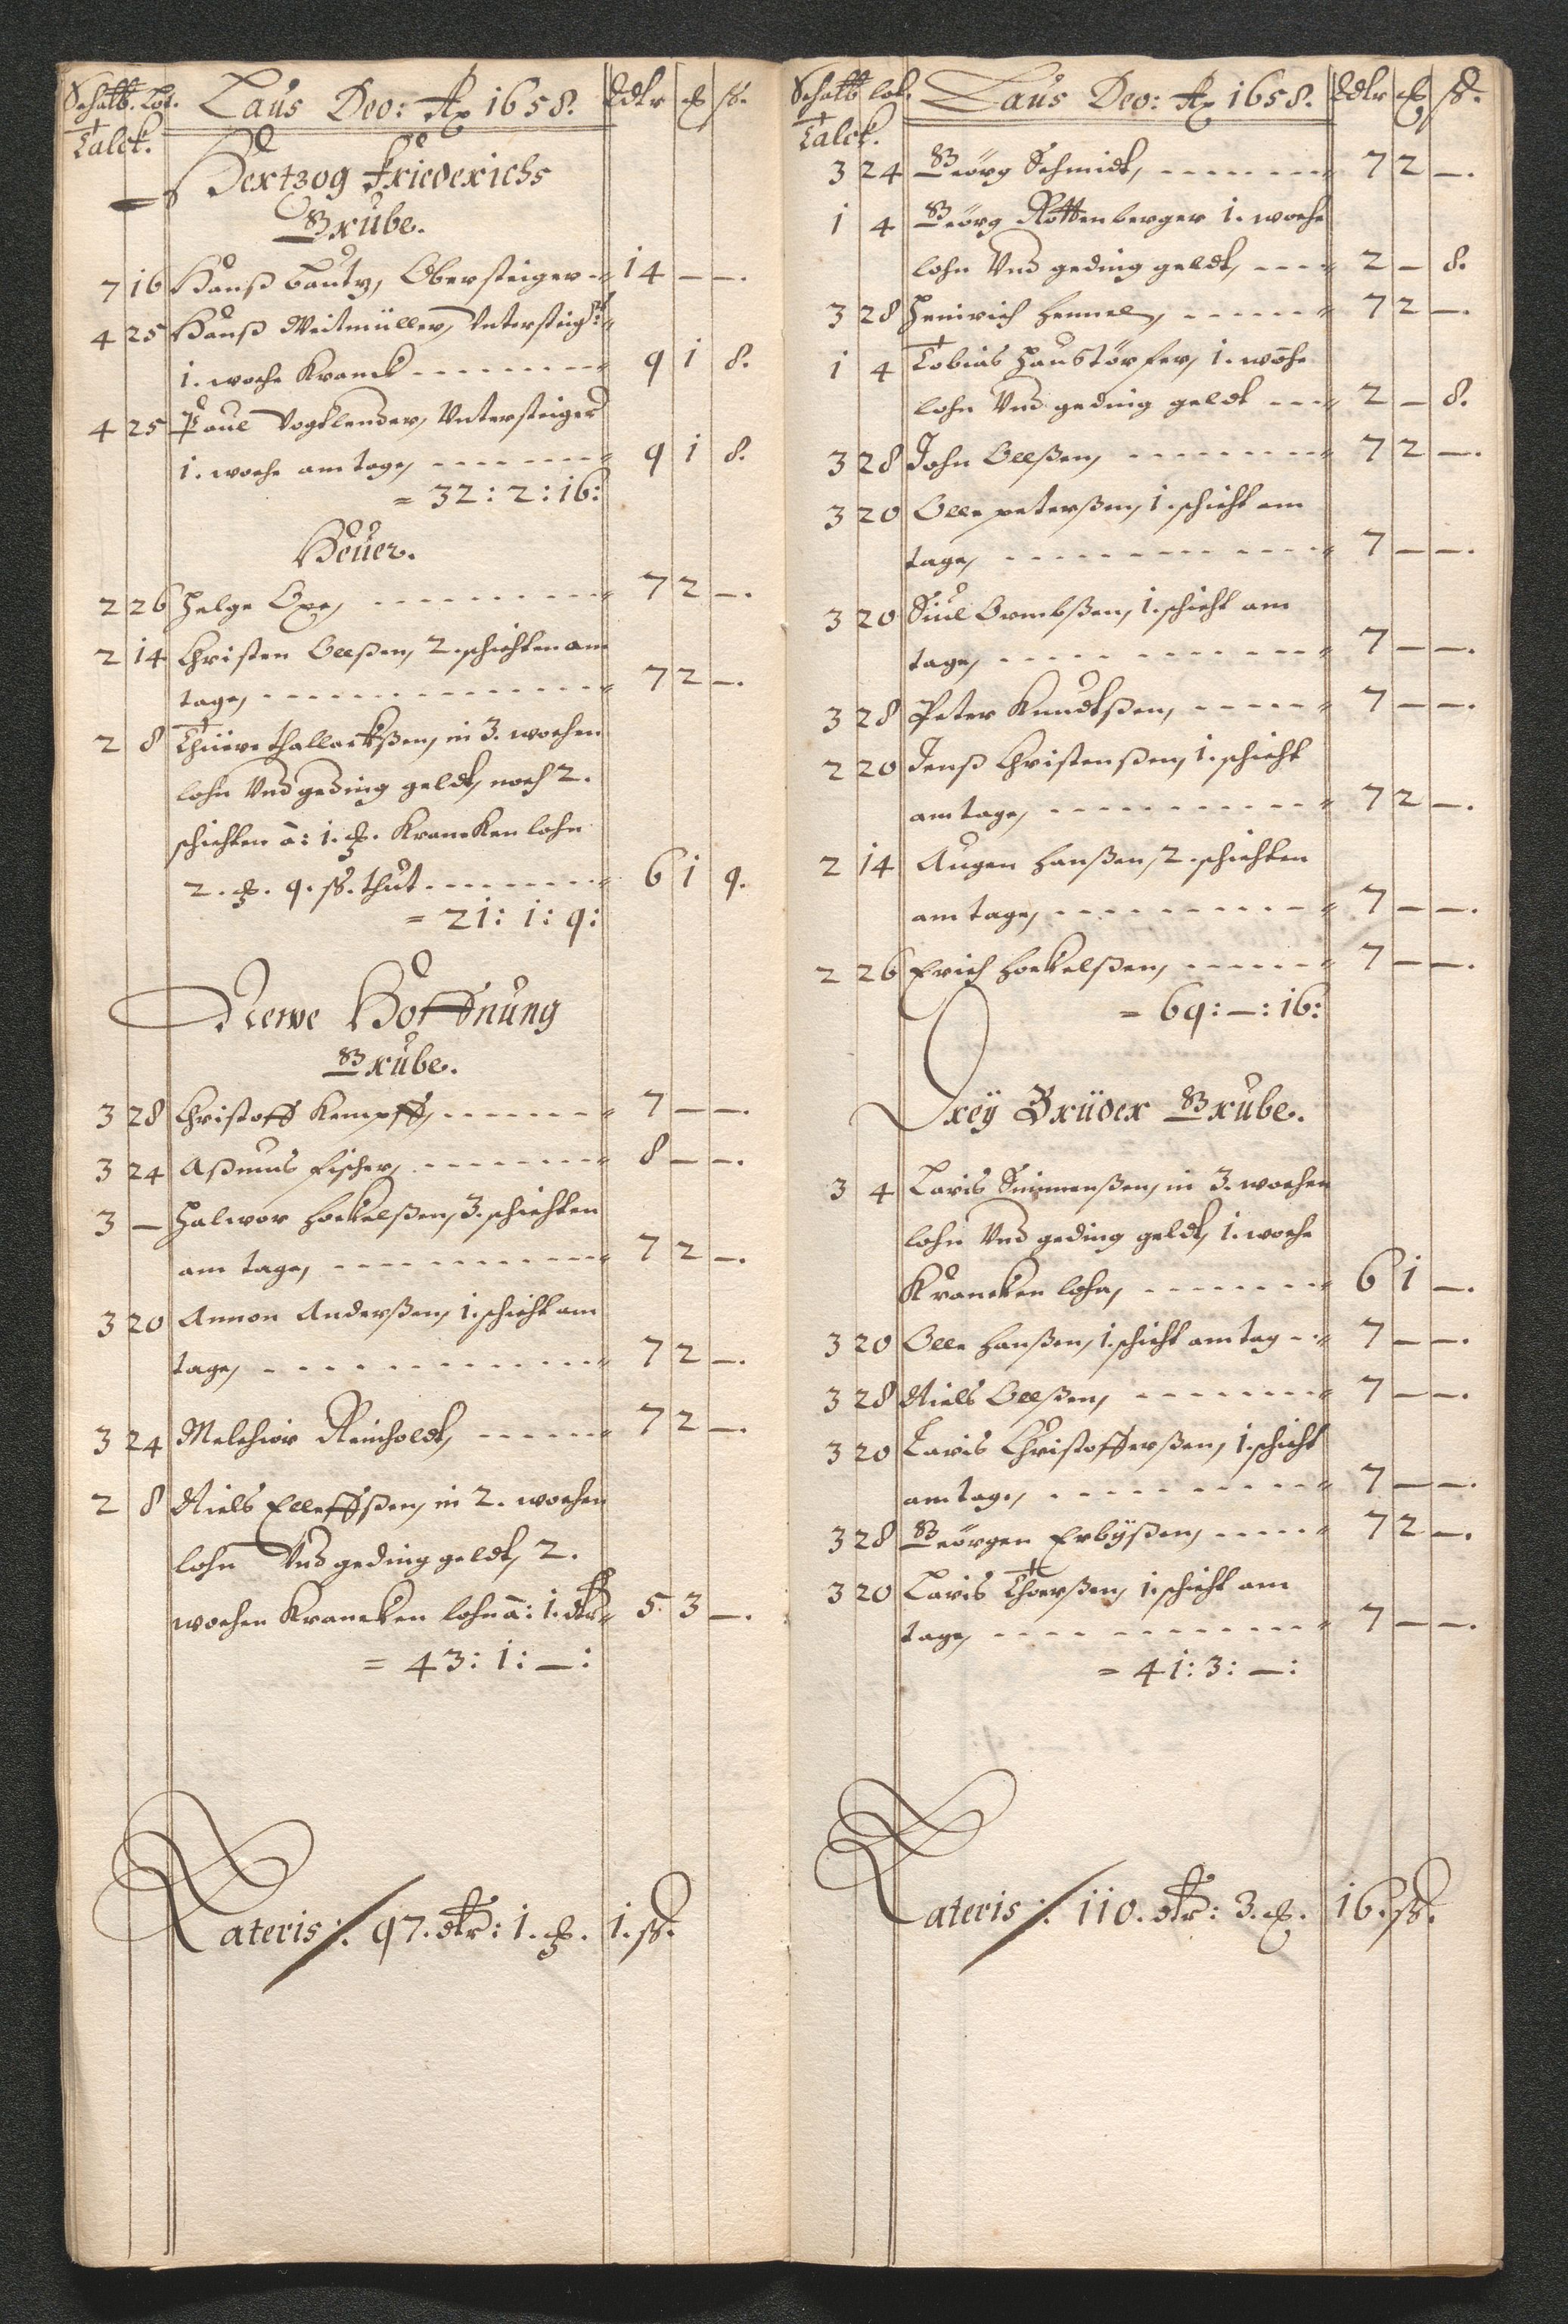 Schatt. Lot. Laus Deo: Ao 1658. Rdlr ℔ ß.
Talck.
Hertzog Friederichs
Grube.
7 16 Hanß Bautz, Obersteiger 14 — —.
4 25 Hanß Weitmüller, Untersteigr:
1. woche Kranck 9 1 8.
4 25 Paul Vogtlender, Untersteiger
1. woche am tage, 9 1 8.
= 32: 2: 16:
Heuer.
2 26 Helge Oxe, 7 2 —.
2 14 Christen Olleßen, 2. schichten am
tage, 7 2 —.
2 8 Thüere Thallackßen, in 3. wochen
lohn Und geding geldt, noch 2.
schichten â: 1. ℔. Krancken lohn
2. ℔. 9. ß. thut 6 1 9.
= 21: 1: 9:
Newe Hoffnung
Grube.
3 28 Christoff Kempff, 7 — —.
3 24 Aßmus Fischer, 8 — —.
3 — Halwor Hockelßen, 3. schichten
am tage, 7 2 —.
3 20 Annon Anderßen, 1. schicht am
tage, 7 2 —.
3 24 Melchior Reinholdt, 7 2 —.
2 8 Niels Elleffßen, in 2. wochen
lohn Und geding geldt, 2.
wochen Krancken lohn â: 1. dlr 5. 3 —.
= 43: 1: —:
Lateris ∕: 97. dlr: 1. ℔. 1. ß.
Schatt lot. Laus Deo: Ao 1658. Rdlr ℔ ß.
Talck.
3 24 Geörg Schmidt, 7 2 —.
1 4 Geörg Rottenberger 1. woche
lohn Und geding geldt, 2 — 8.
3 28 Heinrich Hennel, 7 2 —.
1 4 Tobias Haustörfer, 1. woche
lohn Und geding geldt 2 — 8.
3 28 John Olleßen, 7 2 —.
3 20 Olle peterßen, 1. schicht am
tage, 7 — —.
3 20 Siul Ormbßen, 1. schicht am
tage, 7 — —.
3 28 Peter Knudtßen, 7 — —.
2 20 Jenß Christenßen, 1. schicht
am tage, 7 2 —.
2 14 Augen Hanßen, 2. schichten
am tage, 7 — —.
2 26 Erich Hockelßen, 7 — —.
= 69: —: 16:
Dreÿ Brüder Grube.
3 4 Laris Simmenßen, in 3. wochen
lohn Und geding geldt, 1. woche
Krancken lohn, 6 1 —.
3 20 Olle Hanßen, 1. schicht am tag 7 — —.
3 28 Niels Olleßen, 7 — —.
3 20 Laris Christofferßen, 1. schicht
am tage, 7 — —.
3 28 Geörgen Erbÿßen, 7 2 —.
3 20 Laris Thorßen, 1. schicht am
tage, 7 — —.
= 41: 3: —:
Lateris ∕: 110. dlr: 3. ℔. 16. ß.